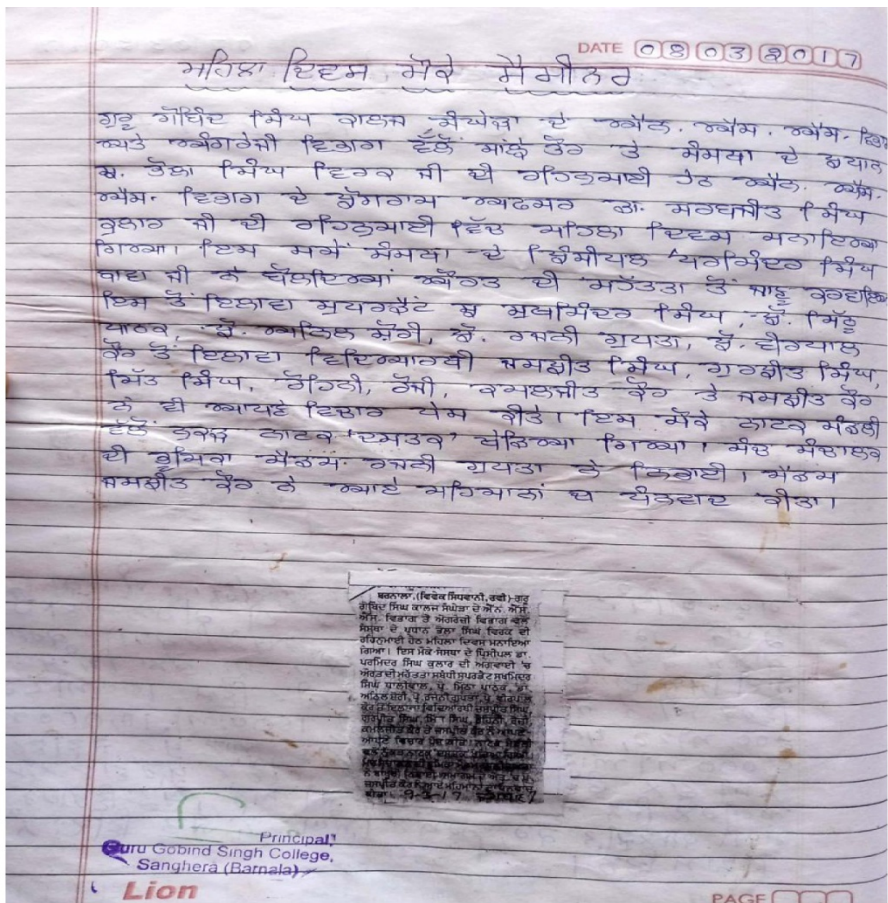 DATE 08 03 2017
ਮਹਿਲਾ ਦਿਵਸ ਮੌਕੇ ਸੈਮੀਨਰ
ਗੁਰੂ ਗੋਬਿੰਦ ਸਿੰਘ ਕਾਲਜ ਸੰਘੇੜਾ ਦੇ ਐਨ. ਐਸ. ਐਸ. ਵਿਭਾਗ
ਅਤੇ ਅੰਗਰੇਜੀ ਵਿਭਾਗ ਵੱਲੋਂ ਸਾਂਝੇ ਤੌਰ ਤੇ ਸੰਸਥਾ ਦੇ ਪ੍ਰਧਾਨ
ਸ. ਭੋਲਾ ਸਿੰਘ ਵਿਰਕ ਜੀ ਦੀ ਰਹਿਨੁਮਾਈ ਹੇਠ ਐਨ. ਐਸ.
ਐਸ. ਵਿਭਾਗ ਦੇ ਪ੍ਰੋਗਰਾਮ ਅਫਸਰ ਡਾ. ਸਰਬਜੀਤ ਸਿੰਘ
ਕੁਲਾਰ ਜੀ ਦੀ ਰਹਿਨੁਮਾਈ ਵਿੱਚ ਮਹਿਲਾ ਦਿਵਸ ਮਨਾਇਆ
ਗਿਆ। ਇਸ ਸਮੇਂ ਸੰਸਥਾ ਦੇ ਪ੍ਰਿੰਸੀਪਲ ਪਰਮਿੰਦਰ ਸਿੰਘ
ਜੀ ਨੇ ਬੋਲਦਿਆਂ ਔਰਤ ਦੀ ਮਹੱਤਤਾ ਤੋਂ ਜਾਣੂ ਕਰਵਾਇਆ
ਇਸ ਤੋਂ ਇਲਾਵਾ ਸੁਪਰਡੈਂਟ ਸ ਸੁਖਮਿੰਦਰ ਸਿੰਘ, ਪ੍ਰੋ. ਮਿੱਠੂ
ਪਾਠਕ, ਪ੍ਰੋ. ਅਨਿਲ ਸ਼ੋਰੀ, ਪ੍ਰੋ. ਰਜਨੀ ਗੁਪਤਾ, ਪ੍ਰੋ. ਵੀਰਪਾਲ
ਕੌਰ ਤੋਂ ਇਲਾਵਾ ਵਿਦਿਆਰਥੀ ਜਸਪ੍ਰੀਤ ਸਿੰਘ, ਗੁਰਪ੍ਰੀਤ ਸਿੰਘ,
ਮਿੱਤ ਸਿੰਘ, ਰੋਹਿਨੀ, ਰੋਜੀ, ਕਮਲਜੀਤ ਕੌਰ ਤੇ ਜਸਪ੍ਰੀਤ ਕੌਰ
ਨੇ ਵੀ ਆਪਣੇ ਵਿਚਾਰ ਪੇਸ਼ ਕੀਤੇ। ਇਸ ਮੌਕੇ ਨਾਟਕ ਮੰਡਲੀ
ਵੱਲੋਂ ਨੁਕੜ ਨਾਟਕ 'ਦਸਤਕ' ਖੇਡਿਆ ਗਿਆ। ਮੰਚ ਸੰਚਾਲਕ
ਦੀ ਭੂਮਿਕਾ ਮੈਡਮ ਰਜਨੀ ਗੁਪਤਾ ਨੇ ਨਿਭਾਈ। ਮੈਡਮ
ਜਸਪ੍ਰੀਤ ਕੌਰ ਨੇ ਆਏ ਮਹਿਮਾਨਾਂ ਦਾ ਧੰਨਵਾਦ ਕੀਤਾ।
ਬਰਨਾਲਾ, (ਵਿਵੇਕ ਸਿੰਧਵਾਨੀ, ਰਵੀ)-ਗੁਰੂ
ਗੋਬਿੰਦ ਸਿੰਘ ਕਾਲਜ ਸੰਘੇੜਾ ਦੇ ਐੱਨ. ਐੱਸ.
ਐੱਸ. ਵਿਭਾਗ ਤੇ ਅੰਗਰੇਜ਼ੀ ਵਿਭਾਗ ਵਲੋਂ
ਸੰਸਥਾ ਦੇ ਪ੍ਰਧਾਨ ਭੋਲਾ ਸਿੰਘ ਵਿਰਕ ਦੀ
ਰਹਿਨੁਮਾਈ ਹੇਠ ਮਹਿਲਾ ਦਿਵਸ ਮਨਾਇਆ
ਗਿਆ। ਇਸ ਮੌਕੇ ਸੰਸਥਾ ਦੇ ਪ੍ਰਿੰਸੀਪਲ ਡਾ.
ਪਰਮਿੰਦਰ ਸਿੰਘ ਕੁਲਾਰ ਦੀ ਅਗਵਾਈ 'ਚ
ਔਰਤ ਦੀ ਮਹੱਤਤਾ ਸਬੰਧੀ ਸੁਪਰਡੈਂਟ ਸੁਖਮਿੰਦਰ
ਸਿੰਘ ਧਾਲੀਵਾਲ, ਪ੍ਰੋ. ਪਾਠਕ, ਡਾ.
ਅਨਿਲ ਸ਼ੋਰੀ, ਪ੍ਰੋ. ਰਜਨੀ ਗੁਪਤਾ, ਪ੍ਰੋ. ਵੀਰਪਾਲ
ਕੌਰ ਤੋਂ ਇਲਾਵਾ ਵਿਦਿਆਰਥੀ ਜਸਪ੍ਰੀਤ ਸਿੰਘ,
ਗੁਰਪ੍ਰੀਤ ਸਿੰਘ, ਸਿੰਘ, ਰੋਹਿਨੀ, ਰੋਜ਼ੀ,
ਕਮਲਜੀਤ ਕੌਰ ਤੇ ਜਸਪ੍ਰੀਤ ਕੌਰ ਨੇ
9-3-17
Principal,
Guru Gobind Singh College,
Sanghera (Barnala)
Lion
PAGE